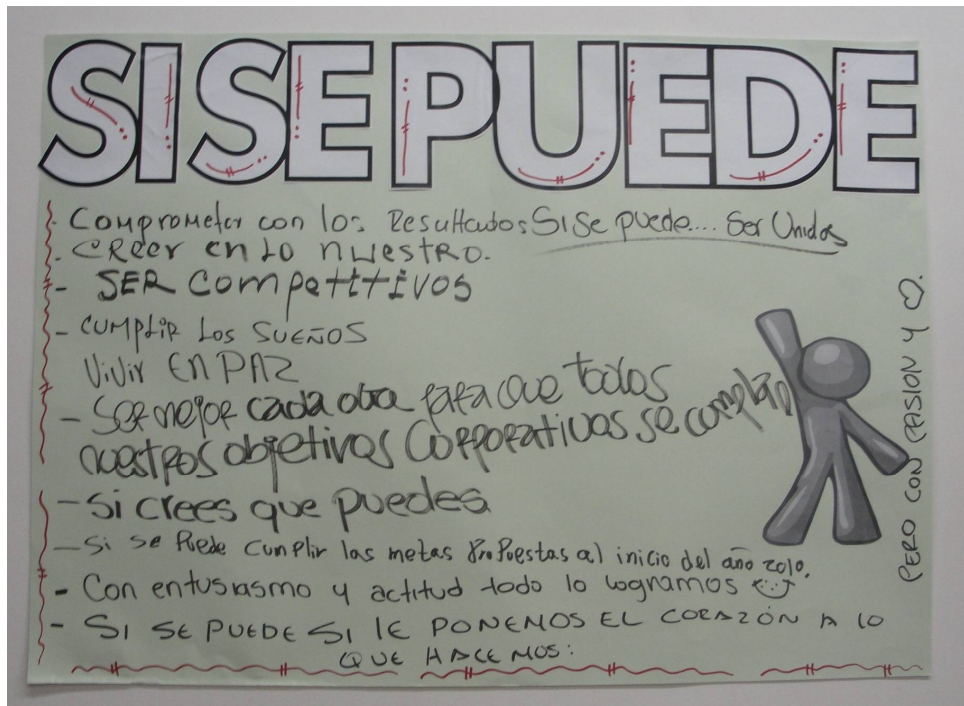 SI SE PUEDE
. Comprometer con los Resultados Si Se puede.... Ser Unidos
. CReer en Lo nuestRo.
- SER CompetitIvos
- CUMPLIR Los SUEÑOS
Vivir EN PAZ
- Ser mejor cada dia para que todos
nuestros objetivos Corporativos se cumplan
- Si crees que puedes
- Si se Puede cumplir las metas Propuestas al inicio del año 2010.
- Con entusiasmo y actitud todo lo logramos
- SI SE PUEDE SI LE PONEMOS EL CORAZÓN A LO
QUE HACEMOS:
PERO CON PASION Y ♡.